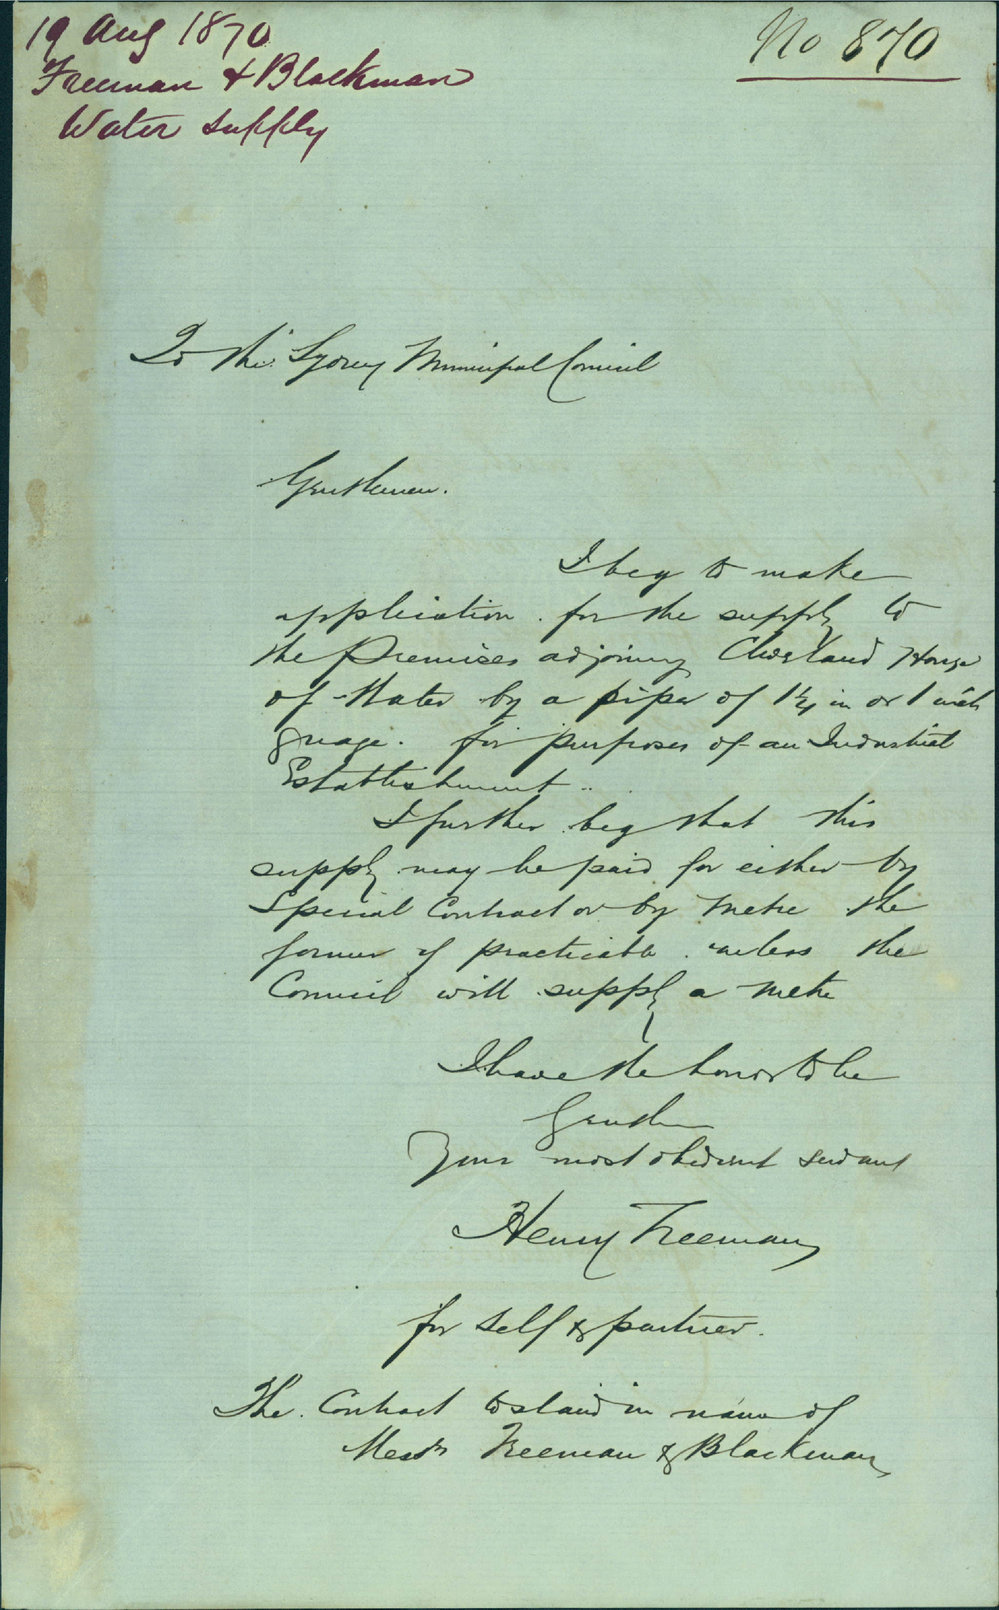 19 Aug 1870
Freeman & Blackman
Water supply
No 870
To the Sydney Municipal Council
Gentlemen.
I beg to make
application. for the supply to
the Premises adjoining Cleveland House
of Water by a pipe of 1¼ in or 1 inch
guage. for purposes of an Industrial
Establishment..
I further beg that this
supply may be paid for either by
Special Contract or by metre the
former if practicable. unless the
Council will supply a metre
I have the honor to be
Gentlm
Your most obedient servant
Henry Freeman
for self & partner.
The. Contract to stand in name of
Messrs Freeman & Blackman